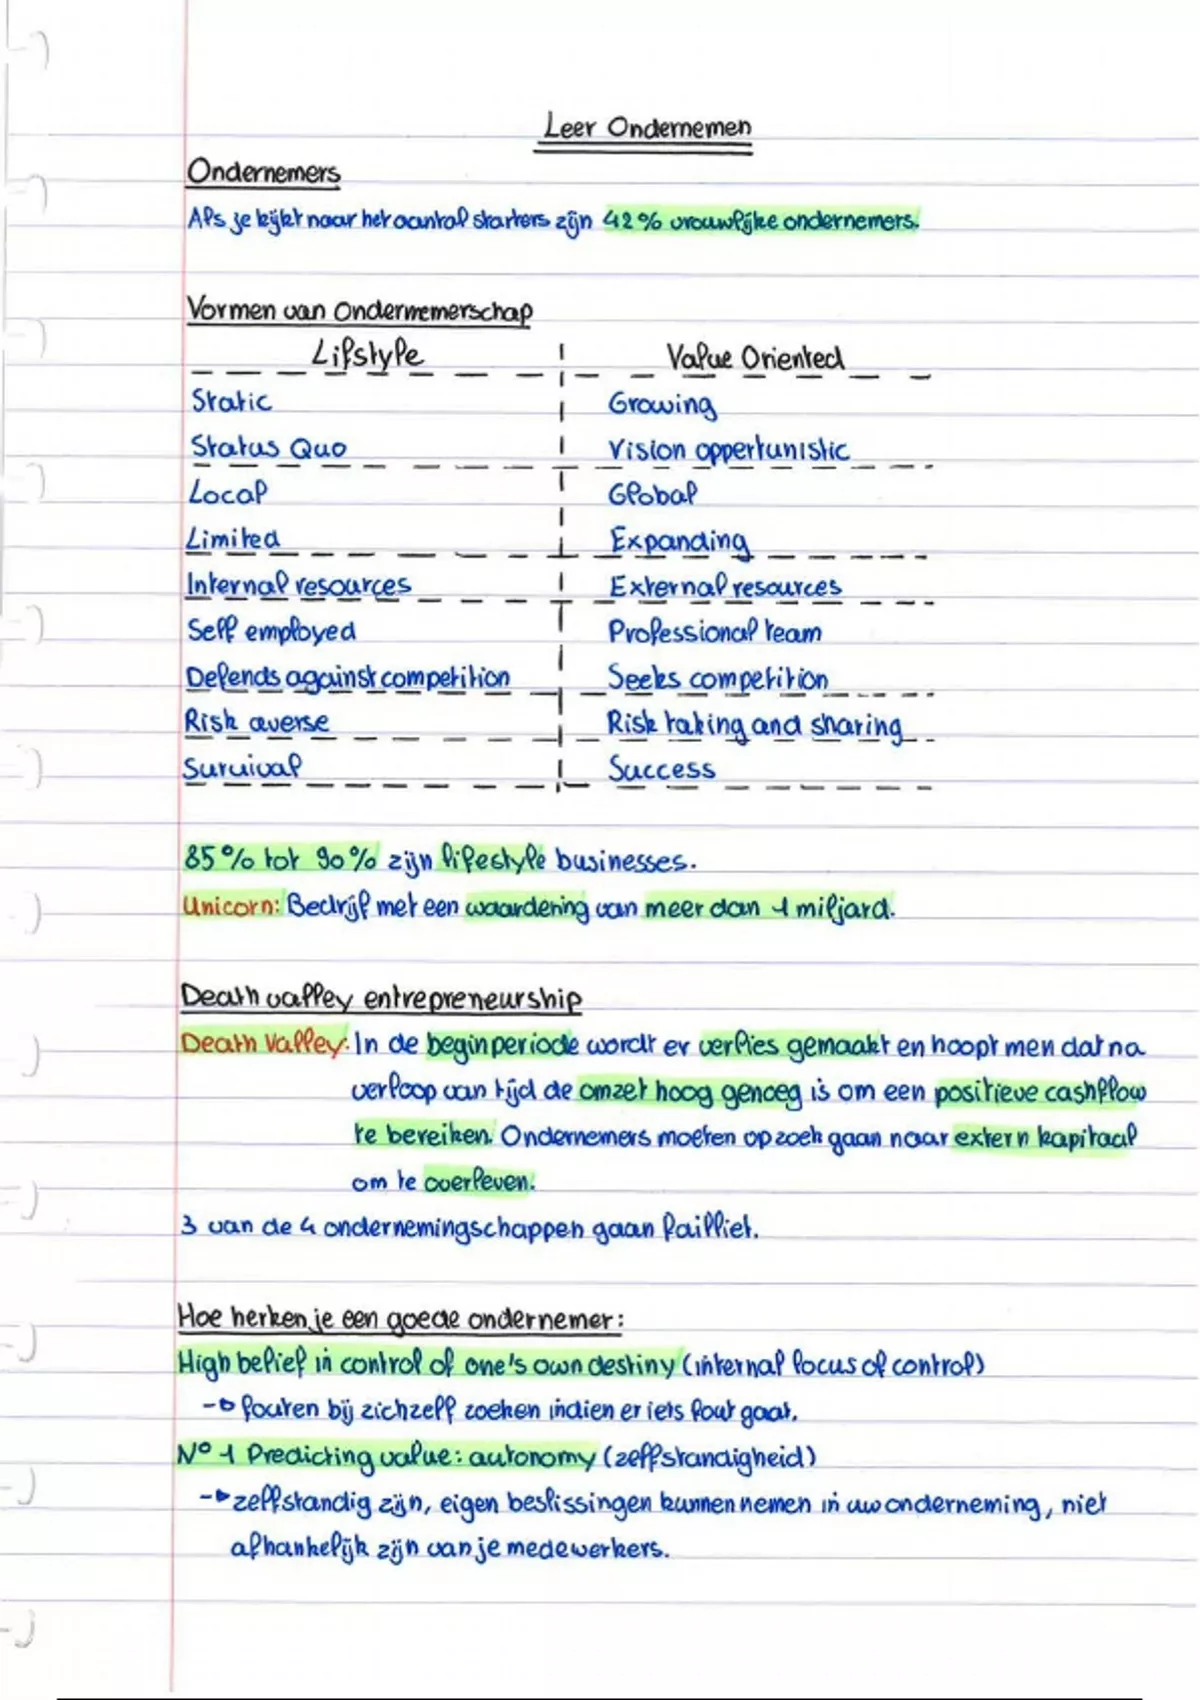 Leer Ondernemen
Ondernemers
Als je kijkt naar het aantal starters zijn 42% vrouwlijke ondernemers.
Vormen van Ondernemerschap
Lifstyle Value Oriented
Static Growing
Status Quo Vision oppertunistic
Local Global
Limited Expanding
Internal resources External resources
Self employed Professional team
Defends against competition Seeks competition
Risk averse Risk taking and sharing
Survival Success
85% tot 90% zijn lifestyle businesses.
Unicorn: Bedrijf met een waardering van meer dan 1 miljard.
Death valley entrepreneurship
Death Valley: In de beginperiode wordt er verlies gemaakt en hoopt men dat na
verloop van tijd de omzet hoog genoeg is om een positieve cashflow
te bereiken. Ondernemers moeten op zoek gaan naar extern kapitaal
om te overleven.
3 van de 4 ondernemingschappen gaan failliet.
Hoe herken je een goede ondernemer:
High belief in control of one's own destiny (internal locus of control)
→ fouten bij zichzelf zoeken indien er iets fout gaat.
N° 1 Predicting value: autonomy (zelfstandigheid)
→ zelfstandig zijn, eigen beslissingen kunnen nemen in uw onderneming, niet
afhankelijk zijn van je medewerkers.